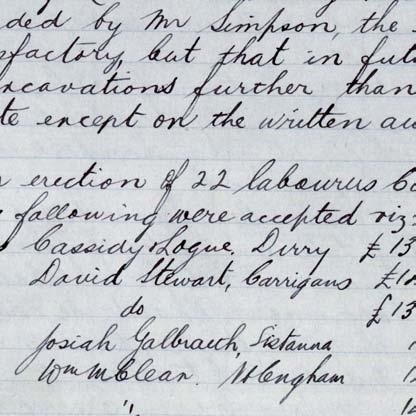 ded by Mr Simpson, the
sfactory, but that in futu
xcavations further than
te except on the written au
erection of 22 labourers Co
following were accepted viz:
Cassidy & Logue, Derry £13
David Stewart, Carrigans £1
do £13
Josiah Galbraith, Listanna
Wm McClean.
"